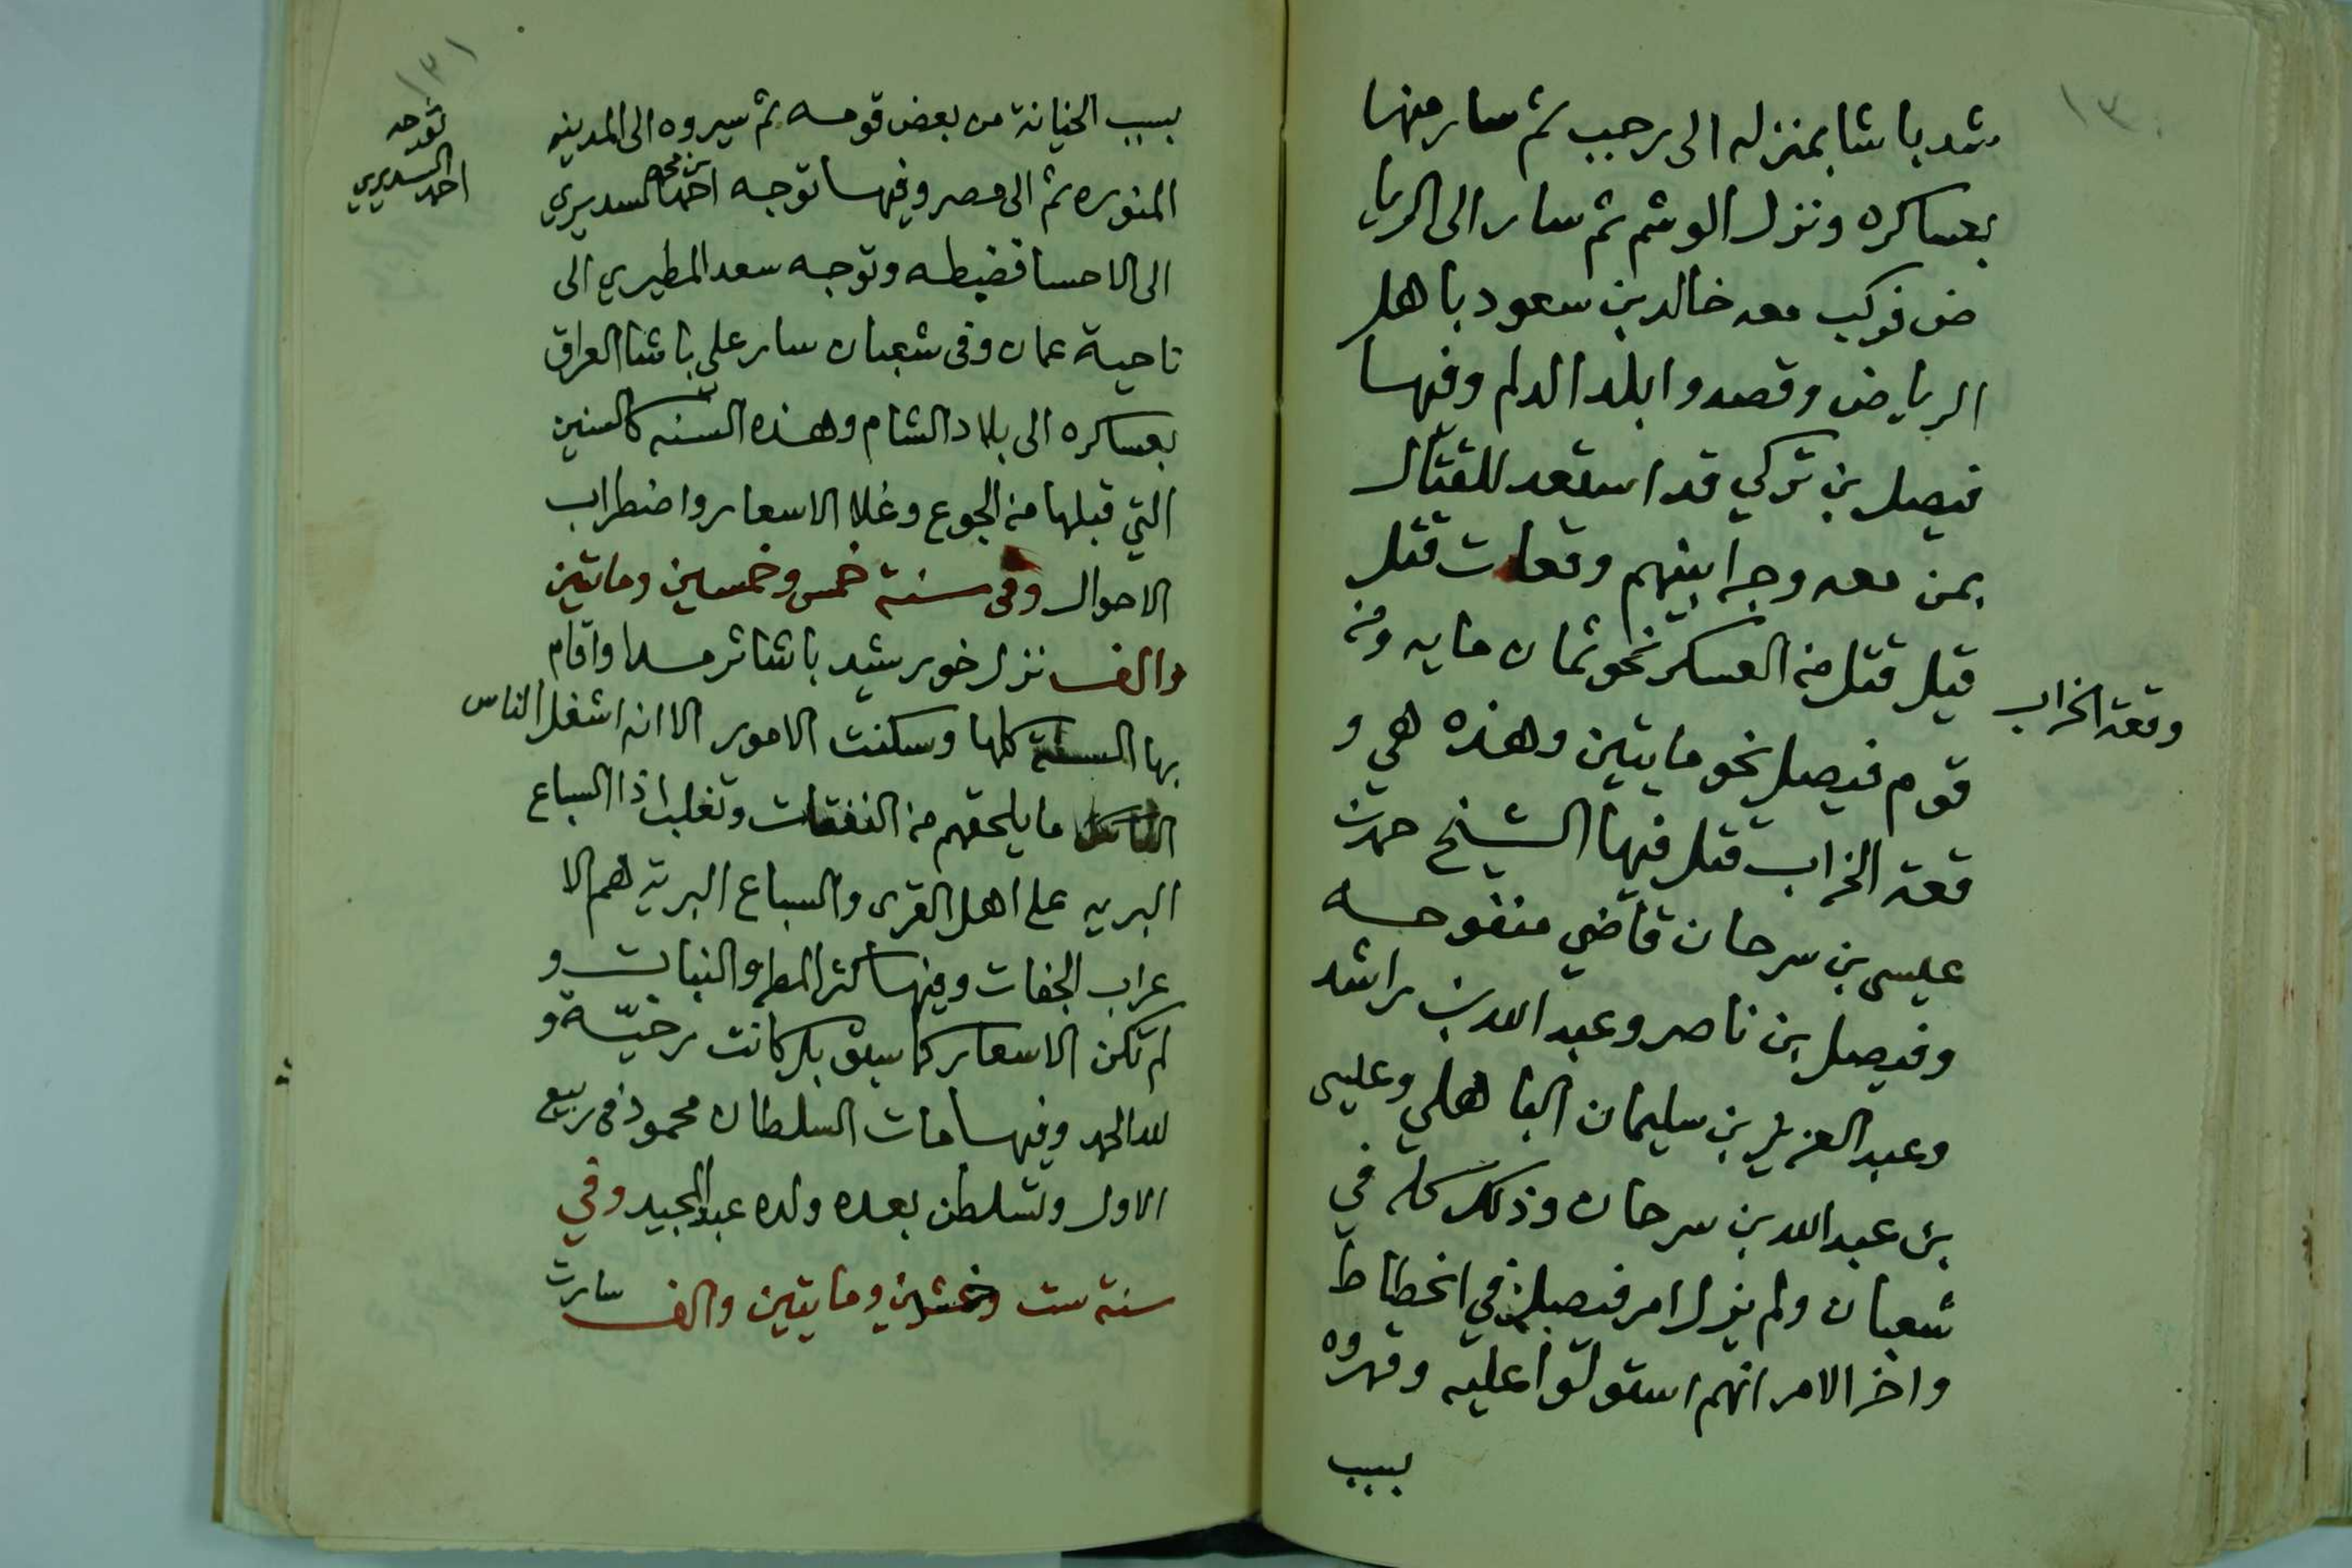 ١٣٠
شد باشا بمنزله الى رجب ثم سار منها
بعساكره ونزل الوشم ثم سار الى الريا
ض فركب معه خالد بن سعود باهل
الرياض وقصدوا بلد الدلم وفيها
فيصل بن تركي قد استعد للقتال
بمن معه وجرا بينهم وقعات قتل
قيل قتل من العسكر نحو ثمان مايه ومن
قوم فيصل نحو مايتين وهذه هي و
قعة الخراب قتل فيها الشيخ حمد بن
عيسى بن سرحان قاضي منفوحه
وفيصل بن ناصر وعبد الله بن راشد
وعبد العزيز بن سليمان الباهلي وعيسى
بن عبد الله بن سرحان وذلك كله في
شعبان ولم يزل امر فيصل في انحطاط
واخر الامر انهم استولوا عليه وقهروه
بسبب
وقعة الخراب
١٣١
بسبب الخيانة من بعض قومه ثم سيروه الى المدينه
المنوره ثم الى مصر وفيها توجه احمد بن محمد السديري
الى الاحسا فضبطه وتوجه سعد المطيري الى
ناحية عمان وفى شعبان سار علي باشا العراق
بعساكره الى بلاد الشام وهذه السنه كالسنين
التي قبلها من الجوع وغلا الاسعار واضطراب
الاحوال وفى سنة خمس وخمسين وماتين
والف نزل خورشيد باشا ثرمدا واقام
بها السنة كلها وسكنت الامور الا انه اشغل الناس
ما يلحقهم من النفقات وتغلب اذا السباع
البريه على اهل القرى والسباع البرية هم الا
عراب الجفات وفيها كثر المطر والنبات و
لم تكن الاسعار كما سبق بل كانت رخيّة و
لله الحمد وفيها مات السلطان محمود فى ربيع
الاول وتسلطن بعده ولده عبد المجيد وفي
سنة ست وخمسين ومايتين والف سارت
توجه
احمد السديري